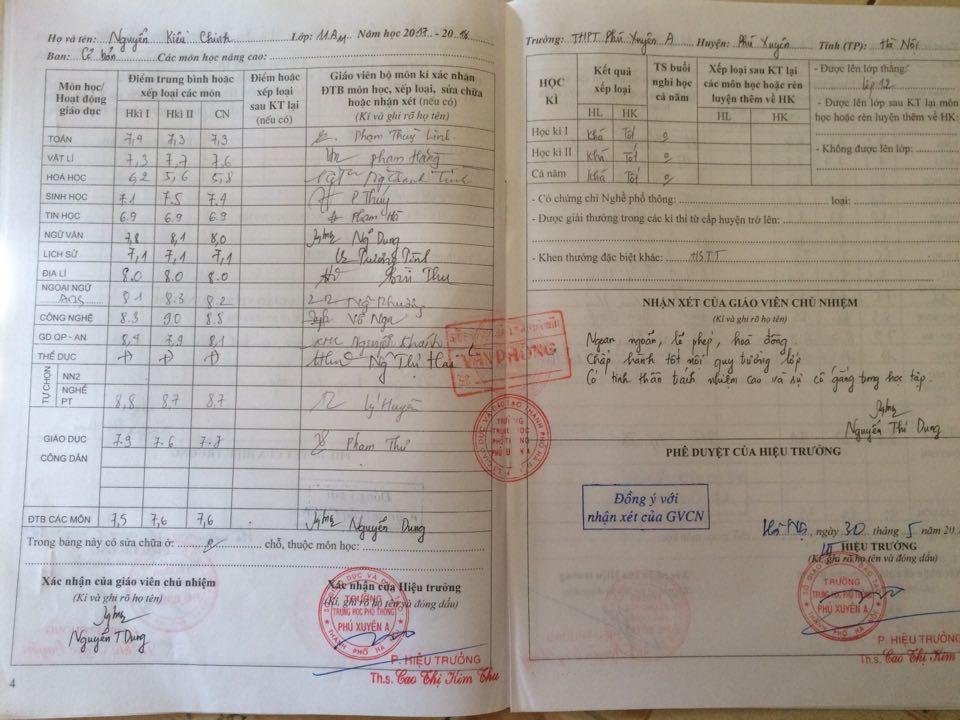 Họ và tên Nguyễn Kiều Chinh Lớp: 11A Năm học 2017 - 2018
Ban: Cơ bản Các môn học nâng cao:
Môn học/ Hoạt động giáo dục
Điểm trung bình hoặc xếp loại các môn
Hki I Hki II CN
Điểm hoặc xếp loại sau KT lại (nếu có)
Giáo viên bộ môn kí xác nhận ĐTB môn học, xếp loại, sửa chữa hoặc nhận xét (nếu có)
(Kí và ghi rõ họ tên)
TOÁN 7,4 7,3 7,3 Phạm Thuỳ Linh
VẬT LÍ 7,3 7,7 7.6 Phạm Hằng
HOÁ HỌC 6,2 5,6 5,8
SINH HỌC 7.1 7.5 7.4 P Thúy
TIN HỌC 6.9 6.9 6.9 Phạm Hà
NGỮ VĂN 7,8 8,1 8,0 Ng Dung
LỊCH SỬ 7,1 7,1 7,1
ĐỊA LÍ 8.0 8.0 8.0 Thu
NGOẠI NGỮ 8.1 8.3 8.2
CÔNG NGHỆ 8.3 9.0 8.8 Vũ Nga
GD QP - AN 8,4 7,9 8,1
THỂ DỤC Đ Đ Đ
TỰ CHỌN NN2
NGHỀ PT 8,8 8,7 8,7 Lý Huyền
GIÁO DỤC CÔNG DÂN 7.9 7.6 7.7 Phạm Thu
ĐTB CÁC MÔN 7,5 7,6 7,6 Nguyễn Dung
Trong bảng này có sửa chữa ở: 0 chỗ, thuộc môn học:
Xác nhận của giáo viên chủ nhiệm
(Kí và ghi rõ họ tên)
Nguyễn T Dung
Xác nhận của Hiệu trưởng
(Kí, ghi rõ họ tên và đóng dấu)
TRƯỜNG
TRUNG HỌC PHỔ THÔNG
PHÚ XUYÊN A
P. HIỆU TRƯỞNG
Th.s. Cao Thị Kim Thu
4
VĂN PHÒNG
Trường: THPT Phú Xuyên A Huyện: Phú Xuyên Tỉnh (TP): Hà Nội
HỌC KÌ
Kết quả xếp loại
HL HK
TS buổi nghỉ học cả năm
Xếp loại sau KT lại các môn học hoặc rèn luyện thêm về HK
HL HK
Học kì I Khá Tốt 0
Học kì II Khá Tốt 0
Cả năm Khá Tốt 0
- Được lên lớp thẳng:
Lớp 12
- Được lên lớp sau KT lại môn học hoặc rèn luyện thêm về HK:
- Không được lên lớp:
- Có chứng chỉ Nghề phổ thông: loại:
- Được giải thưởng trong các kì thi từ cấp huyện trở lên:
- Khen thưởng đặc biệt khác: HSTT
NHẬN XÉT CỦA GIÁO VIÊN CHỦ NHIỆM
Ngoan ngoãn, lễ phép, hoà đồng
Chấp hành tốt nội quy trường lớp
Có tinh thần trách nhiệm cao và sự cố gắng trong học tập.
Nguyễn Thị Dung
PHÊ DUYỆT CỦA HIỆU TRƯỞNG
Đồng ý với
nhận xét của GVCN
Hà Nội, ngày 30 tháng 5 năm 20
HIỆU TRƯỞNG
(Kí, ghi rõ họ tên và đóng dấu)
TRƯỜNG
TRUNG HỌC PHỔ THÔNG
PHÚ XUYÊN A
P. HIỆU TRƯỞNG
Th.s. Cao Thị Kim